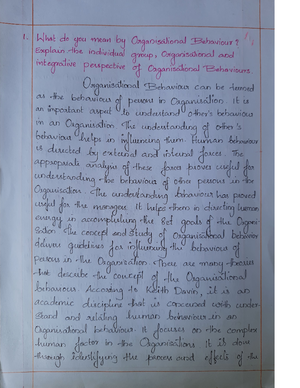 1. What do you mean by Organisational Behaviour?
Explain the individual group, Organisational and
integrative perspective of Organisational Behaviours
Organisational Behaviour can be termed
as the behaviour of person in Organisation. It is
an important aspect to understand other's behaviour
in an Organisation. The understanding of other's
behaviour helps in influencing them. Human behaviour
is directed by external and internal forces. The
appropriate analysis of these forces proves useful for
understanding the behaviour of other persons in the
Organisation. The understanding behaviour has proved
useful for the managers. It helps them in directing human
energy in accomplishing the set goals of the Organi-
sation. The concept and study of Organisational behaviour
deliver guidelines for influencing the behaviour of
persons in the Organisation. There are many theories
that describe the concept of the Organisational
behaviour. According to Keith Davis, it is an
academic discipline that is concerned with under-
stand and relating human behaviour in an
Organisational behaviour. It focuses on the complex
human factor in the Organisations. It is done
through identifying the process and effects of the